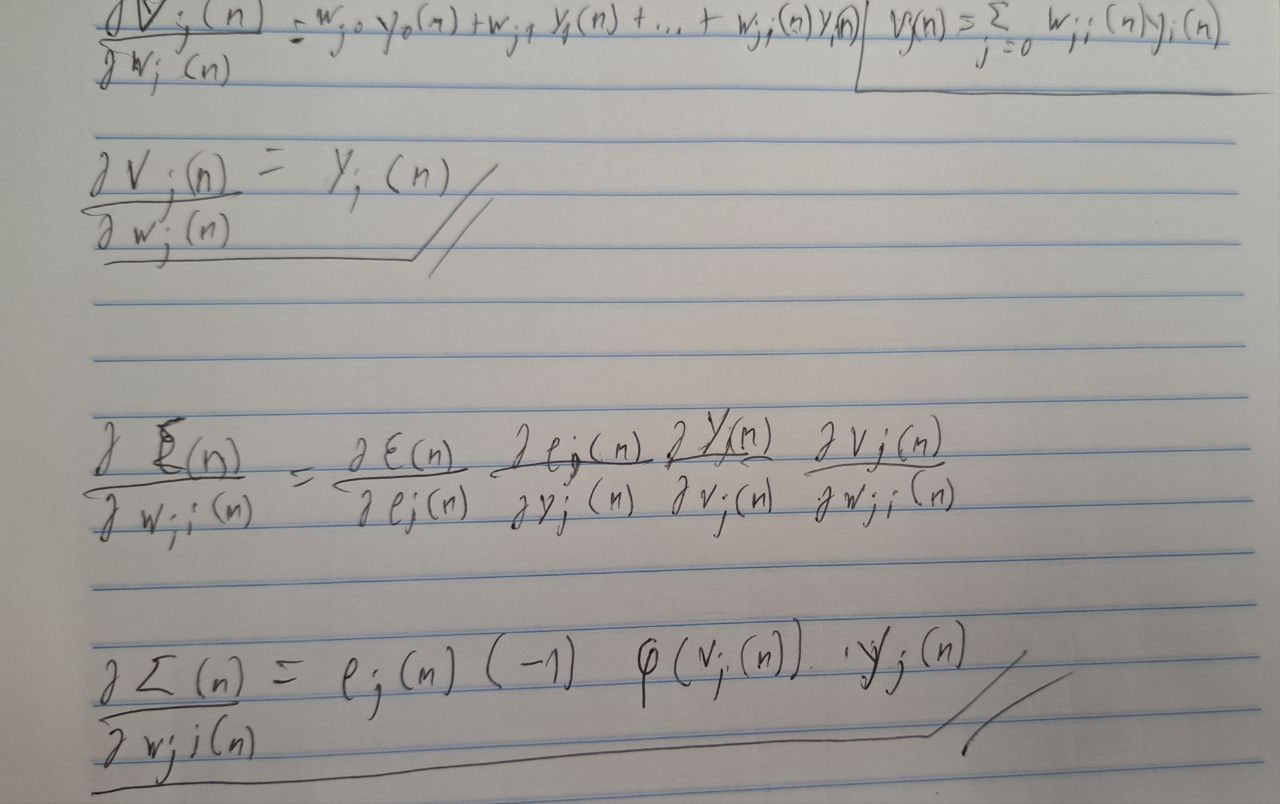 ∂V_j(n)/∂w_j(n) = w_j0 y_0(n) + w_j1 y_1(n) + ... + w_ji(n) y_i(n) | V_j(n) = Σ_{j=0} w_ji(n) y_i(n)
∂V_j(n)/∂w_j(n) = y_i(n) //
∂Ɛ(n)/∂w_ji(n) = ∂Ɛ(n)/∂e_j(n) ∂e_j(n)/∂y_j(n) ∂y_j(n)/∂v_j(n) ∂v_j(n)/∂w_ji(n)
∂Σ(n)/∂w_ji(n) = e_j(n) (-1) φ(v_j(n)) · y_j(n) //